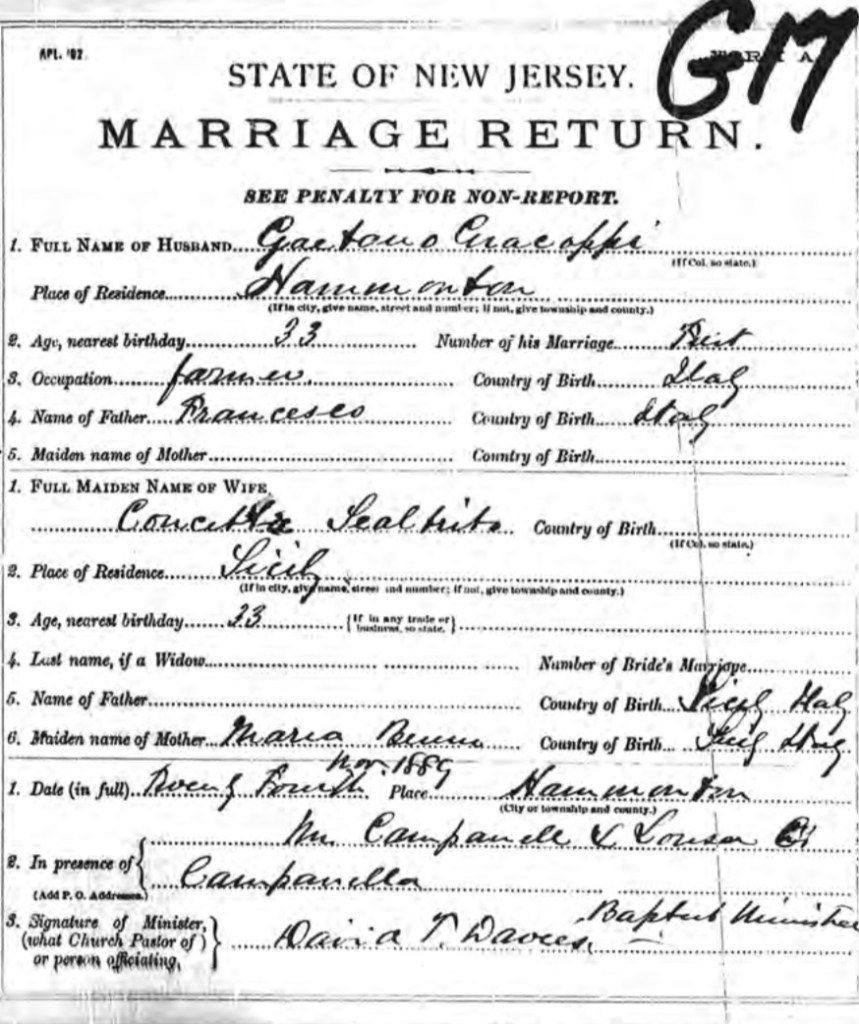 G17
APL. '92.
STATE OF NEW JERSEY.
MARRIAGE RETURN.
SEE PENALTY FOR NON-REPORT.
1. FULL NAME OF HUSBAND Gaetano
(If Col. so state.)
Place of Residence Hammonton
(If in city, give name, street and number; if not, give township and county.)
2. Age, nearest birthday 33 Number of his Marriage First
3. Occupation farmer Country of Birth Italy
4. Name of Father Francesco Country of Birth Italy
5. Maiden name of Mother Country of Birth
1. FULL MAIDEN NAME OF WIFE
Concetta Country of Birth
(If Col. so state.)
2. Place of Residence Sicily
(If in city, give name, street and number; if not, give township and county.)
3. Age, nearest birthday 33 {If in any trade or business, so state.}
4. Last name, if a Widow Number of Bride's Marriage
5. Name of Father Country of Birth Sicily Italy
6. Maiden name of Mother Maria Country of Birth Sicily Italy
Nov. 1889
1. Date (in full) Fourth Place Hammonton
(City or township and county.)
Campanell & Louisa
2. In presence of Campanella
(Add P. O. Addresses.)
3. Signature of Minister, (what Church Pastor of) or person officiating, David T. Davies. Baptist Minister